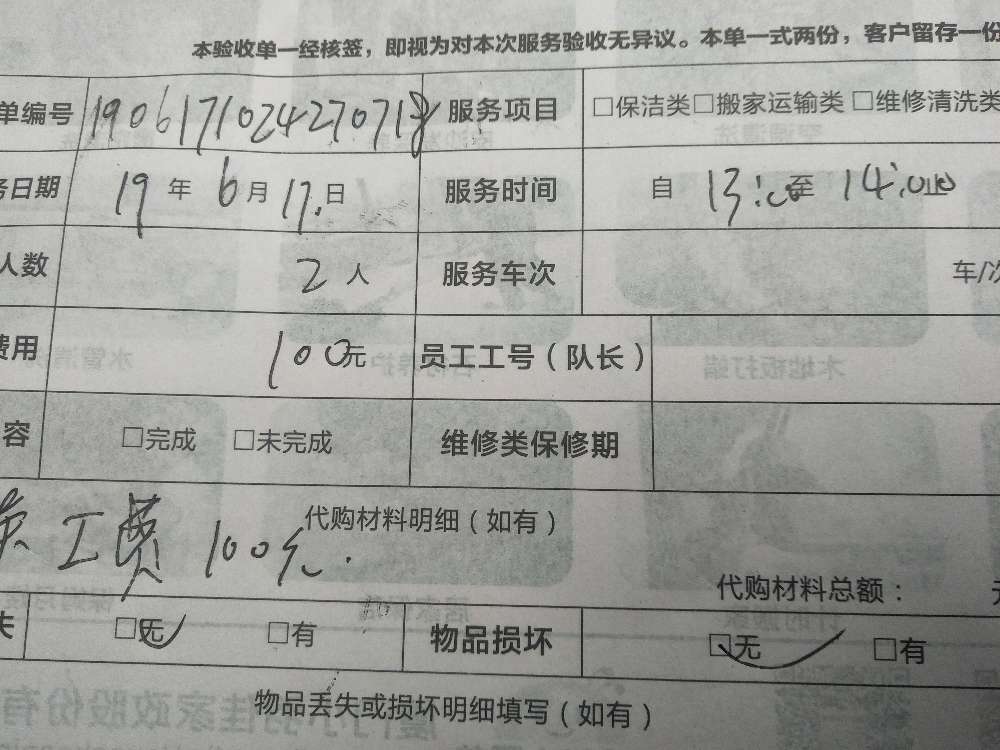 本验收单一经核签，即视为对本次服务验收无异议。本单一式两份，客户留存一份
单编号 190617102427071 服务项目 □保洁类□搬家运输类 □维修清洗类
务日期 19 年 6 月 17. 日 服务时间 自 13:00 至 14:00
人数 2 人 服务车次 车/次
费用 100元 员工工号（队长）
容 □完成 □未完成 维修类保修期
工费 100元. 代购材料明细（如有）
代购材料总额：
失 □无 □有 物品损坏 □无 □有
物品丢失或损坏明细填写（如有）